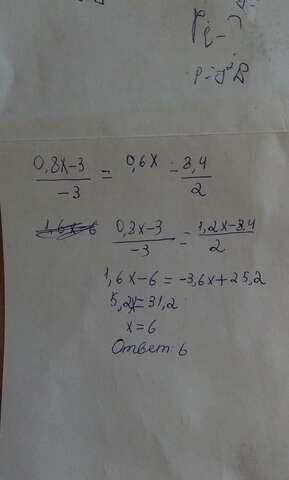 P_i - ?
P = J²R
(0,8x-3)/(-3) = 0,6x - 8,4/2
(0,8x-3)/(-3) = (1,2x-8,4)/2
1,6x-6 = -3,6x+25,2
5,2x=31,2
x=6
Ответ: 6